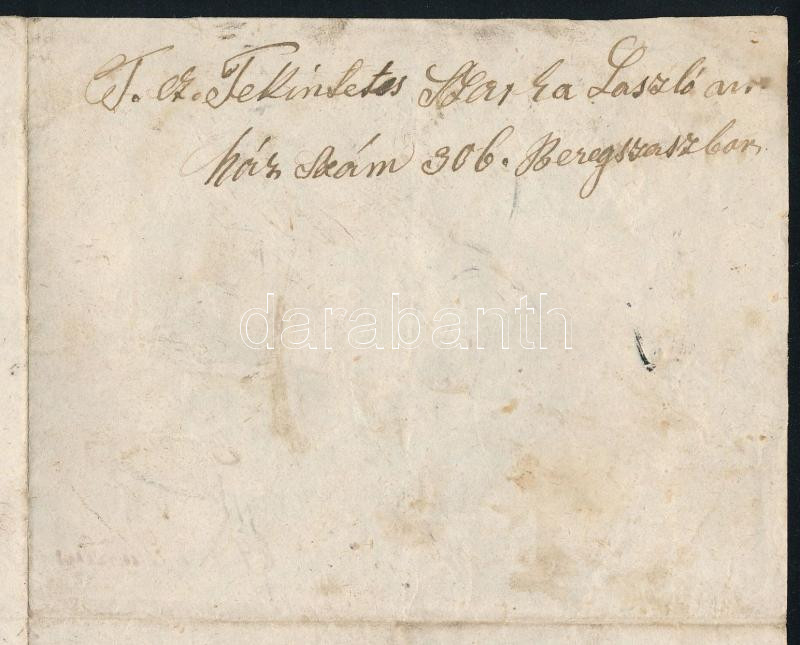 T. cz. Tekintetes Szarka László úr.
ház szám 306. Beregszaszban
darabanth